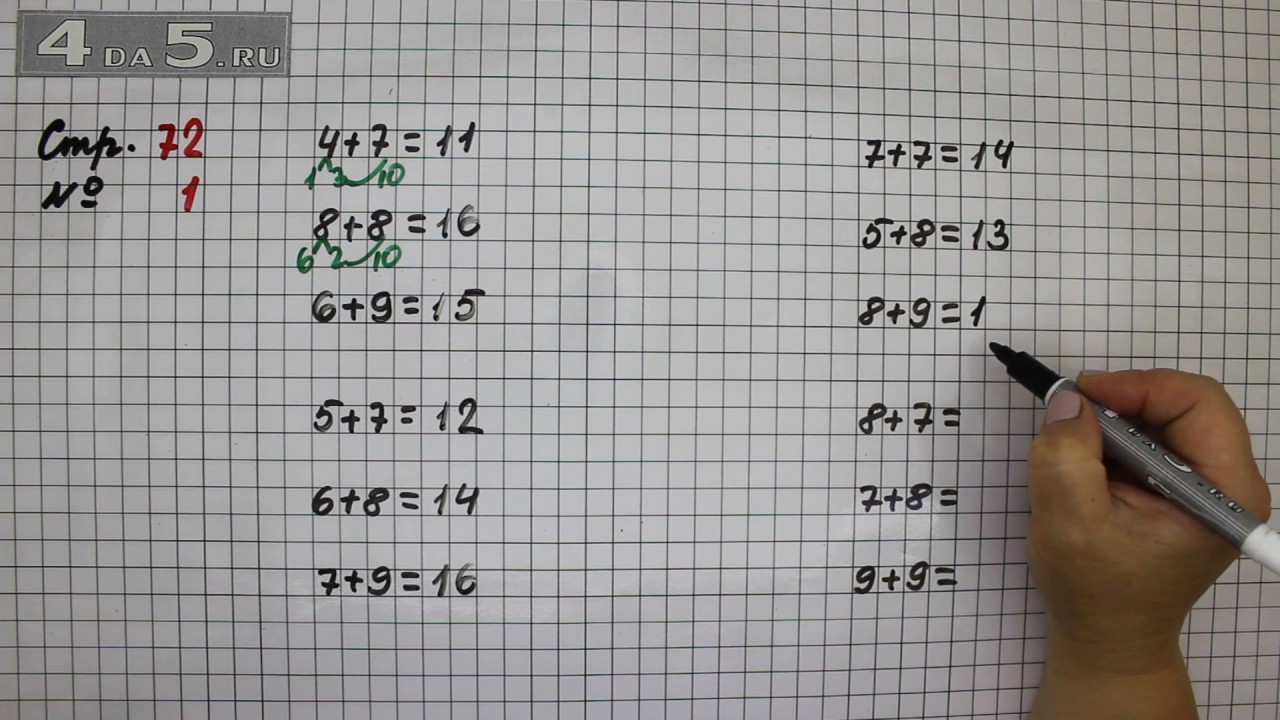 4 DA 5.RU
Стр. 72
№ 1
4+7=11
1 3 10
8+8=16
6 2 10
6+9=15
5+7=12
6+8=14
7+9=16
7+7=14
5+8=13
8+9=1
8+7=
7+8=
9+9=